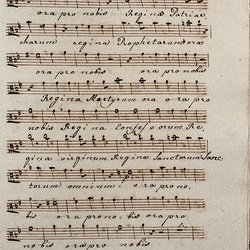 ora pro nobis Regina Patriar
charum regina Prophetarum ora
ora pro nobis ora pro nobis
Regina Martyrum ora ora pro
nobis Regina Confessorum Re,
gina virginum Regina Sanctorum Sanc
torum omnium. ora pro no,
bis ora pro no, bis ora pro
nobis ora pro nobis